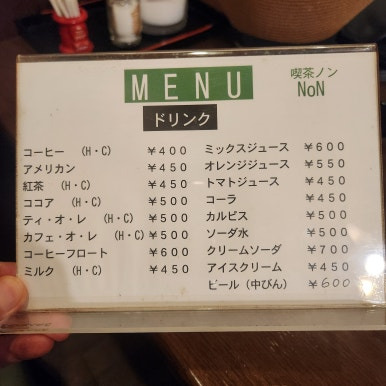 MENU
喫茶ノン
NoN
ドリンク
コーヒー (H・C) ￥400
アメリカン ￥450
紅茶 (H・C) ￥450
ココア (H・C) ￥500
ティ・オ・レ (H・C) ￥500
カフェ・オ・レ (H・C) ￥500
コーヒーフロート ￥600
ミルク (H・C) ￥450
ミックスジュース ￥600
オレンジジュース ￥550
トマトジュース ￥450
コーラ ￥450
カルピス ￥500
ソーダ水 ￥500
クリームソーダ ￥700
アイスクリーム ￥450
ビール(中びん) ￥600